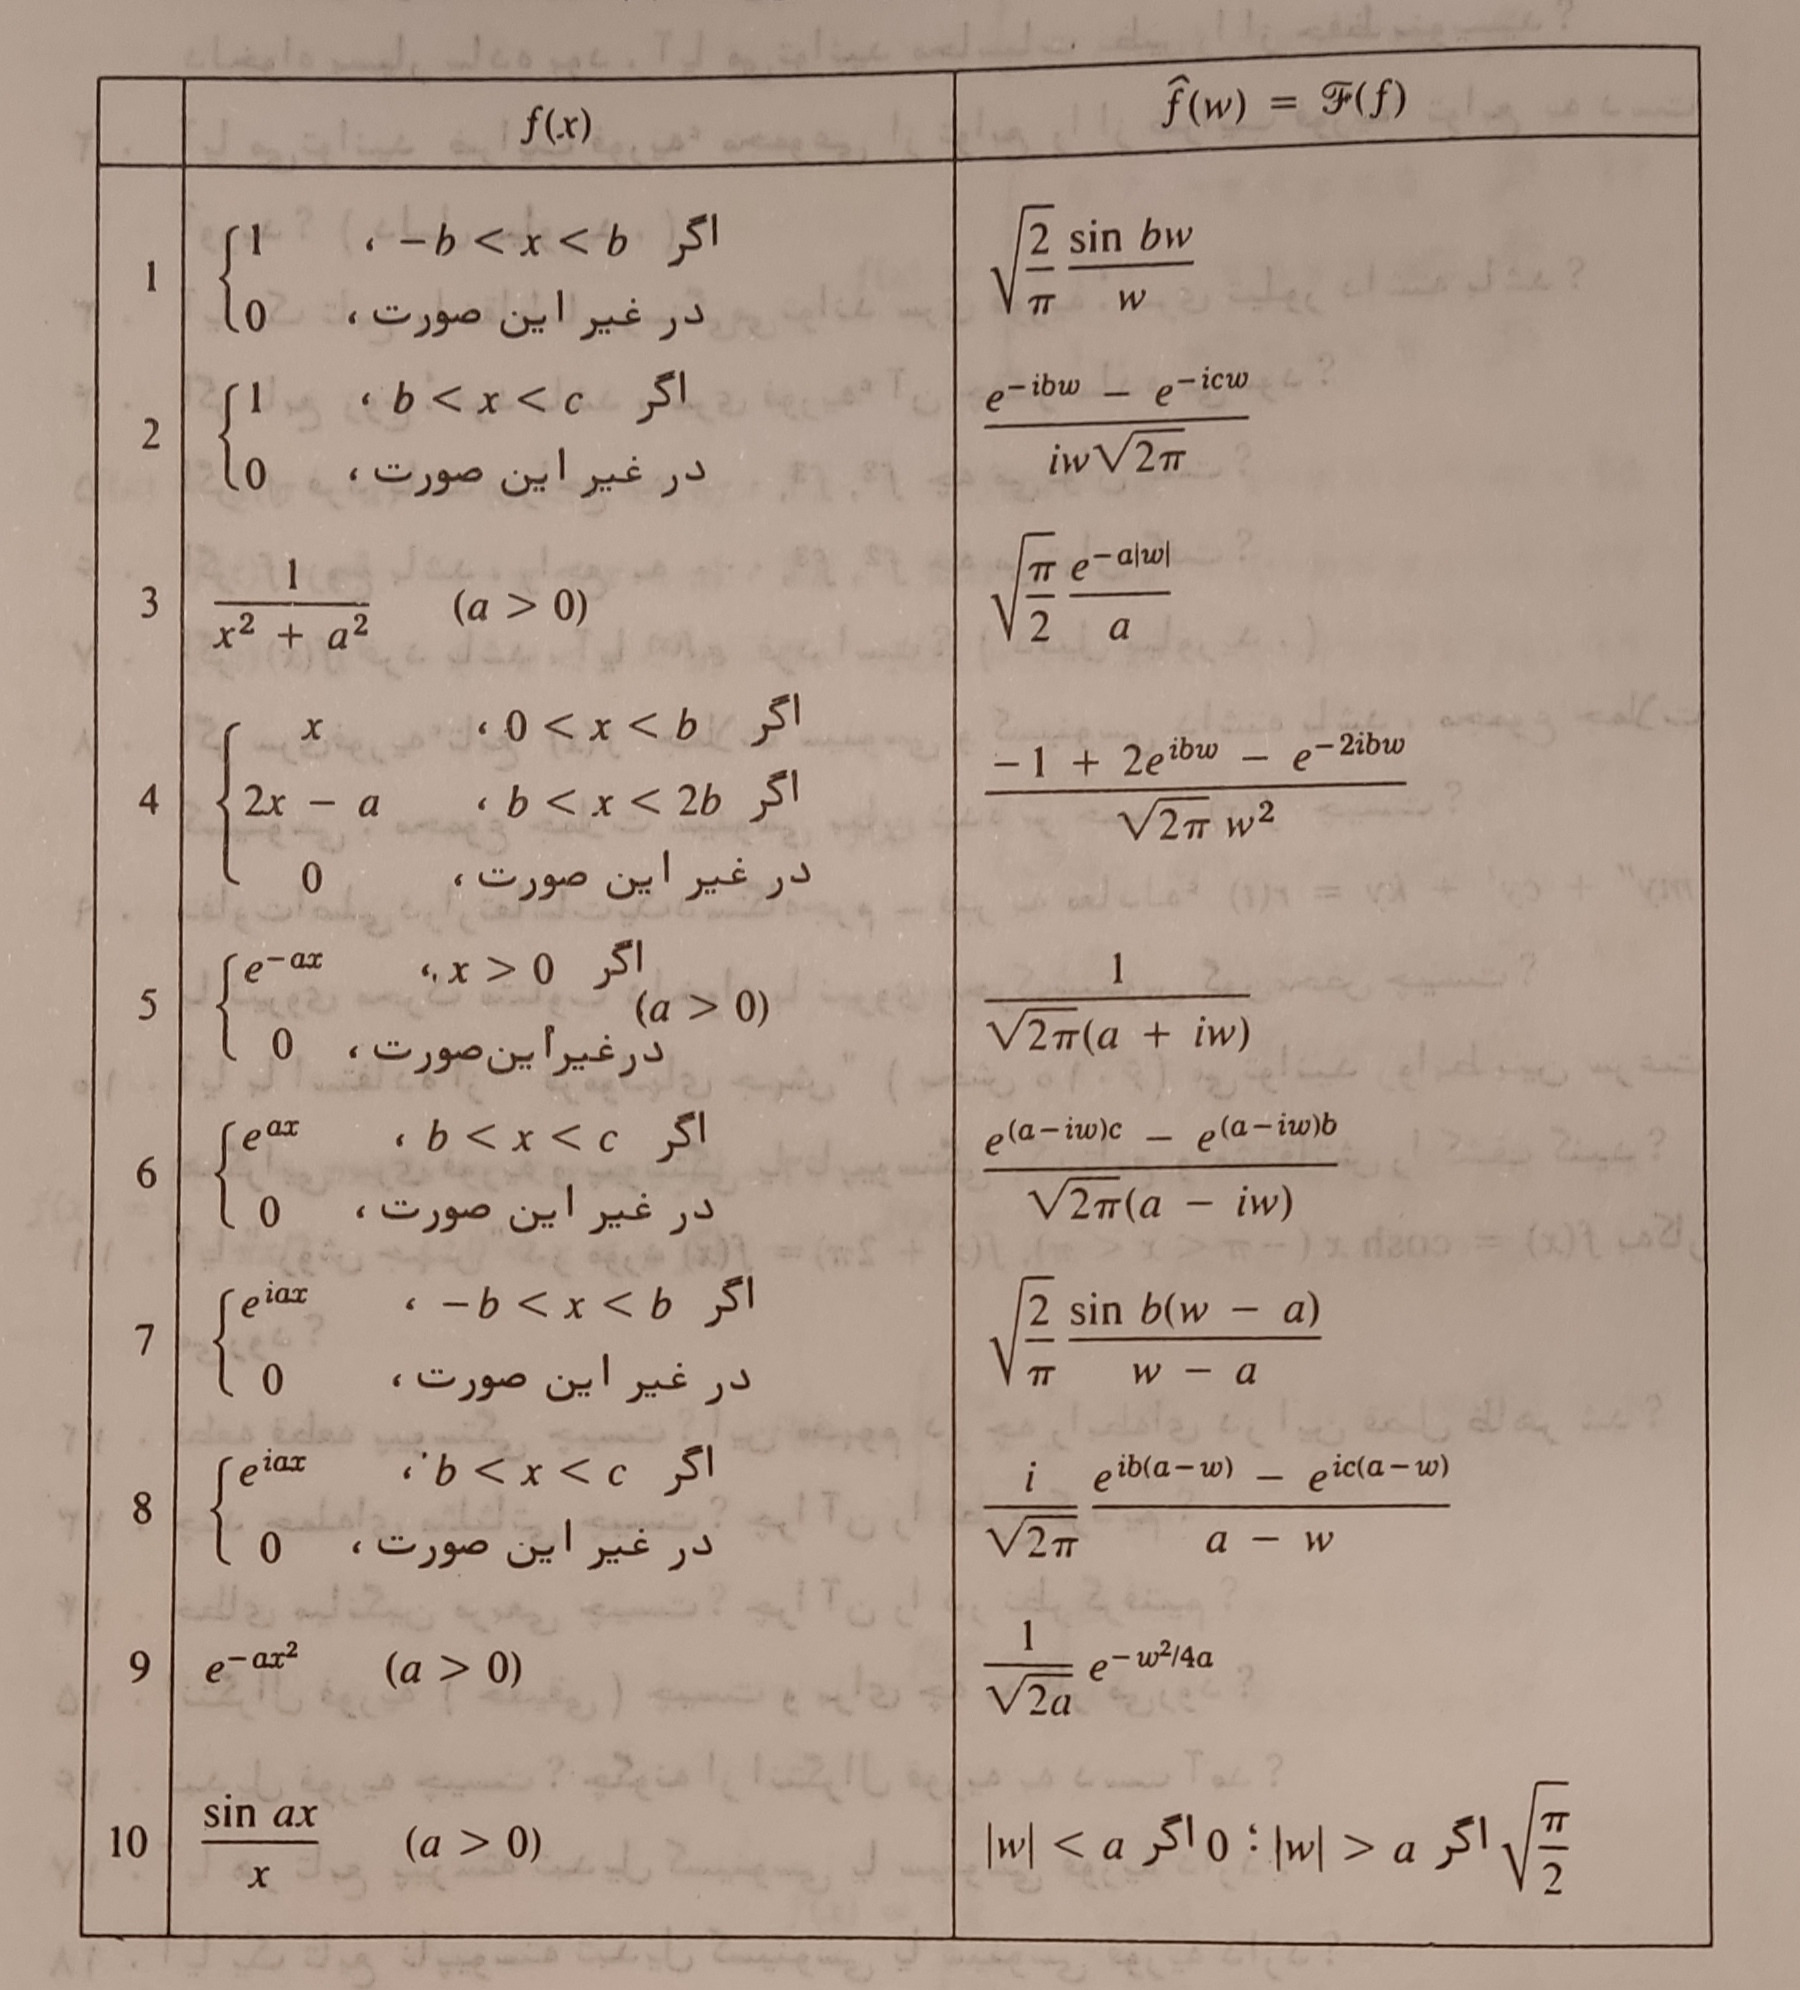 f(x) f̂(w) = ℱ(f)
1 { 1 ، −b < x < b اگر
0 ، در غیر این صورت
√(2/π) (sin bw)/w
2 { 1 ، b < x < c اگر
0 ، در غیر این صورت
(e^{−ibw} − e^{−icw})/(iw√(2π))
3 1/(x² + a²) (a > 0) √(π/2) (e^{−a|w|})/a
4 { x ، 0 < x < b اگر
2x − a ، b < x < 2b اگر
0 ، در غیر این صورت
(−1 + 2e^{ibw} − e^{−2ibw})/(√(2π) w²)
5 { e^{−ax} ، x > 0 اگر
(a > 0)
0 ، در غیر این صورت
1/(√(2π)(a + iw))
6 { e^{ax} ، b < x < c اگر
0 ، در غیر این صورت
(e^{(a−iw)c} − e^{(a−iw)b})/(√(2π)(a − iw))
7 { e^{iax} ، −b < x < b اگر
0 ، در غیر این صورت
√(2/π) (sin b(w − a))/(w − a)
8 { e^{iax} ، b < x < c اگر
0 ، در غیر این صورت
(i/√(2π)) (e^{ib(a−w)} − e^{ic(a−w)})/(a − w)
9 e^{−ax²} (a > 0) (1/√(2a)) e^{−w²/4a}
10 (sin ax)/x (a > 0) √(π/2) اگر |w| > a ؛ 0 اگر |w| < a